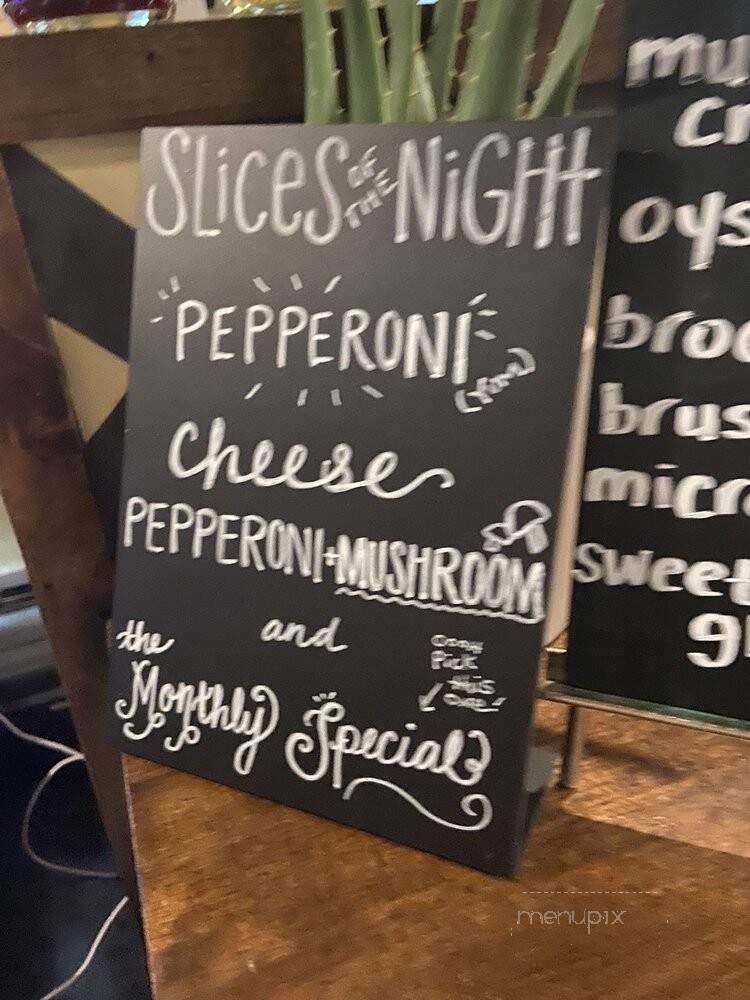 SLiceS OF THE NiGHt
PEPPERONI
cheese
PEPPERONI+MUSHROOM
and
the
Monthly Special
Pick
this
one!
mu
cr
oys
broc
brus
micro
sweet
menupix